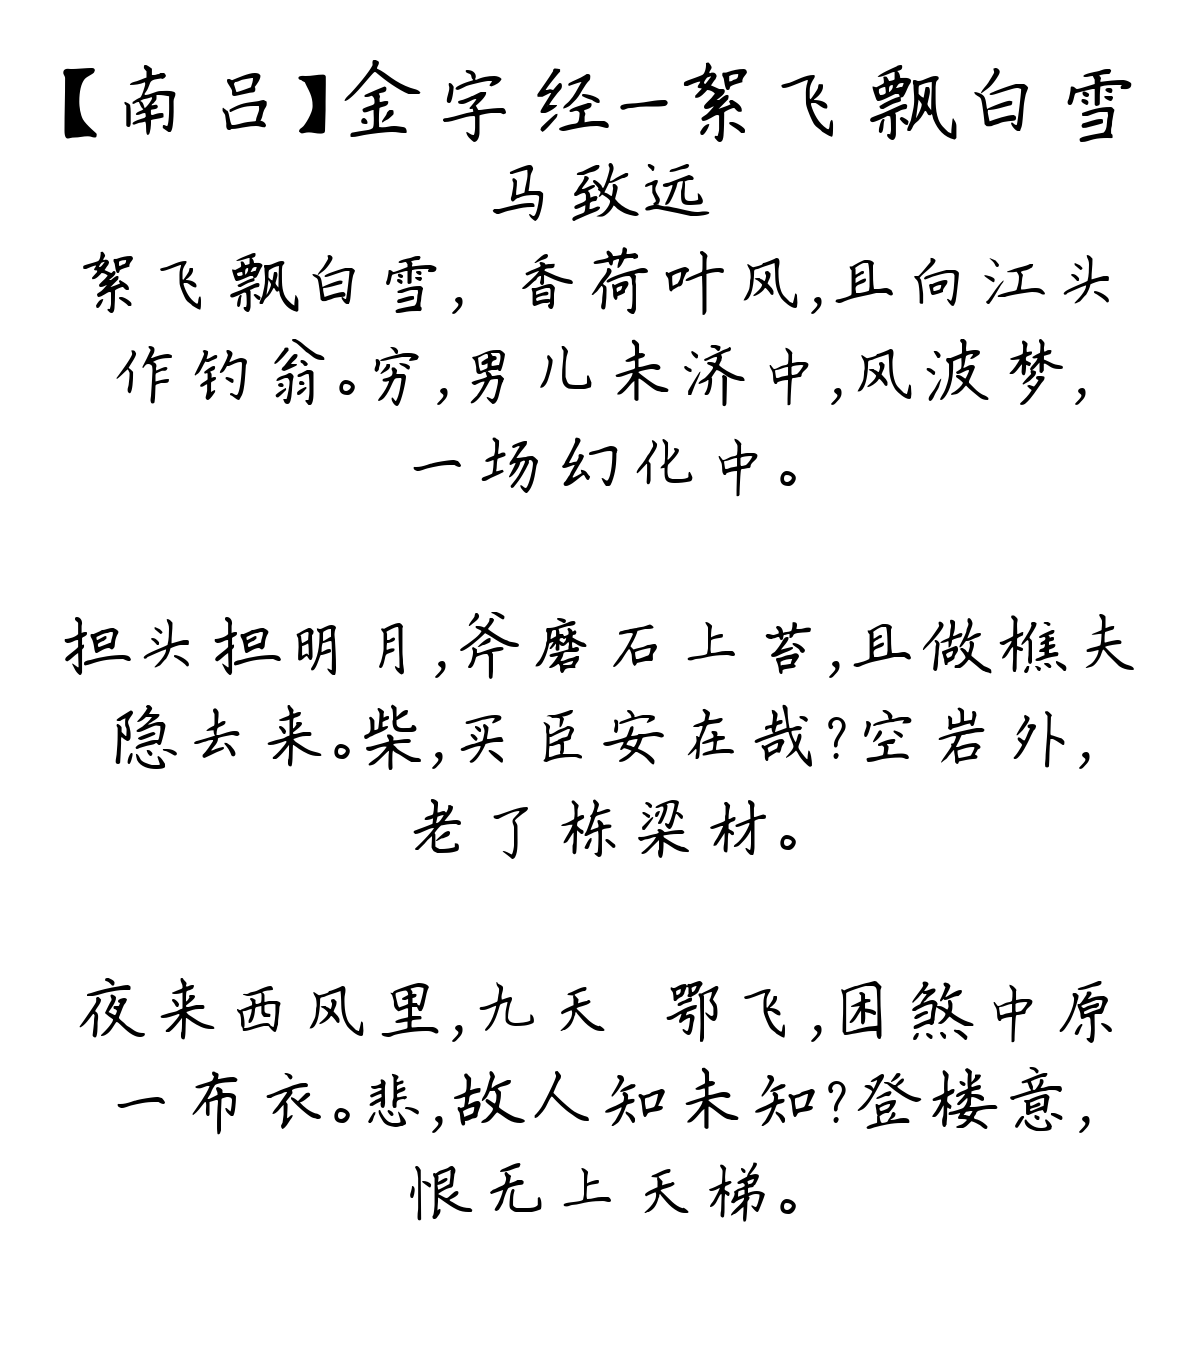 【南吕】金字经-絮飞飘白雪
马致远
絮飞飘白雪，香荷叶风，且向江头
作钓翁。穷，男儿未济中，风波梦，
一场幻化中。
担头担明月，斧磨石上苔，且做樵夫
隐去来。柴，买臣安在哉？空岩外，
老了栋梁材。
夜来西风里，九天 鄂飞，困煞中原
一布衣。悲，故人知未知？登楼意，
恨无上天梯。